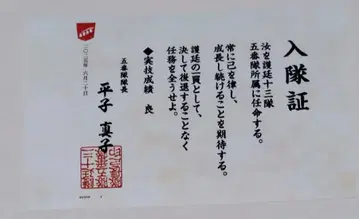 入隊証
汝を護廷十三隊
五番隊所属に任命する。
常に己を律し、
成長し続けることを期待する。
護廷の一員として、
決して後退することなく
任務を全うせよ。
◆実技成績 良
五番隊隊長
平子 真子
二〇二五年 六月二十日